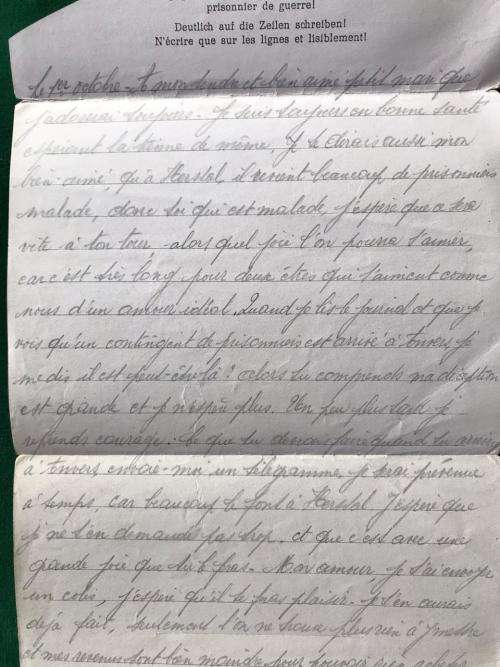 prisonnier de guerre!
Deutlich auf die Zeilen schreiben!
N'écrire que sur les lignes et lisiblement!
le 1er octobre A mon tendre et bien aimé petit mari que
j'adorerai toujours. Je suis toujours en bonne santé
espérant la tienne de même, Je te dirais aussi mon
bien-aimé qu'à Herstal il revient beaucoup de prisonniers
malade, donc toi qui est malade, j'espère que ce sera
vite à ton tour alors quel joie l'on pourra s'aimer,
car c'est très long pour deux êtres qui s'aiment comme
nous d'un amour idéal. Quand je lis le journal et que je
vois qu'un contingent de prisonniers est arrivé à Anvers je
me dis il est peut-être là? alors tu comprends ma déception
est grande et je n'espère plus. Un peu plus tard je
reprends courage. Ce que tu devras faire quand tu arrive
à Anvers envoie-moi un télégramme, je serai prévenue
à temps, car beaucoup le font à Herstal J'espère que
je ne t'en demande pas trop. et que c'est avec une
grande joie que tu le feras. Mon amour, je t'ai envoyer
un colis, j'espère qu'il te fras plaisir. Je t'en aurais
déjà fait, seulement l'on ne trouve plus rien à y mettre
et mes revenus sont bien